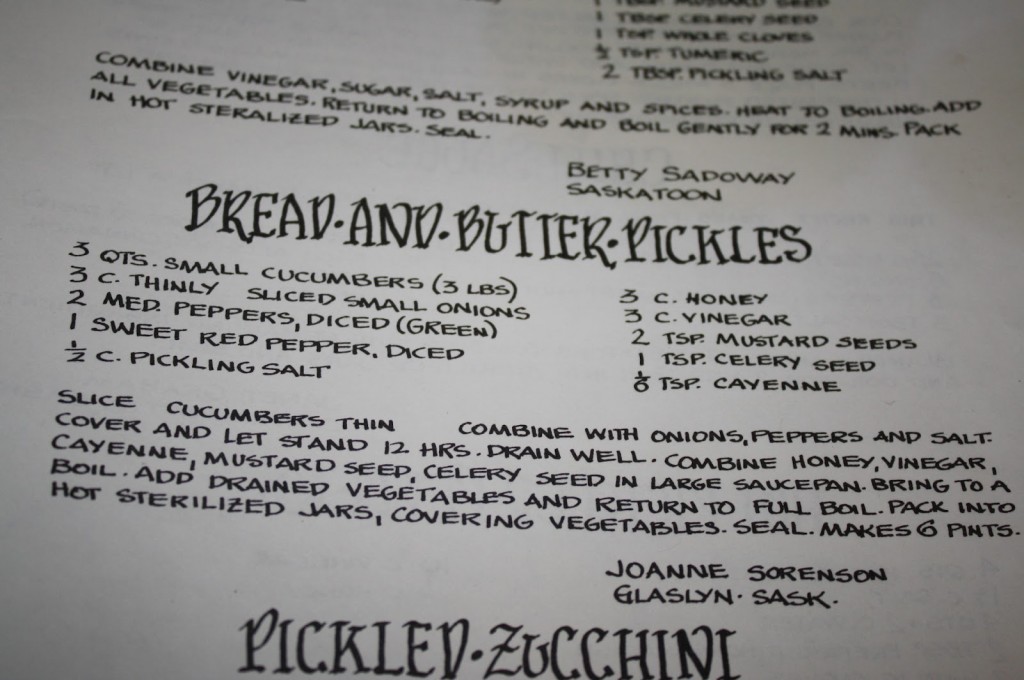 1 TBSP MUSTARD SEED
1 TBSP CELERY SEED
1 TSP WHOLE CLOVES
½ TSP. TUMERIC
2 TBSP. PICKLING SALT
COMBINE VINEGAR, SUGAR, SALT, SYRUP AND SPICES. HEAT TO BOILING. ADD
ALL VEGETABLES. RETURN TO BOILING AND BOIL GENTLY FOR 2 MINS. PACK
IN HOT STERALIZED JARS. SEAL.
BETTY SADOWAY
SASKATOON
BREAD·AND·BUTTER·PICKLES
3 QTS. SMALL CUCUMBERS (3 LBS)
3 C. THINLY SLICED SMALL ONIONS
2 MED. PEPPERS, DICED (GREEN)
1 SWEET RED PEPPER, DICED
½ C. PICKLING SALT
3 C. HONEY
3 C. VINEGAR
2 TSP. MUSTARD SEEDS
1 TSP. CELERY SEED
⅛ TSP. CAYENNE
SLICE CUCUMBERS THIN COMBINE WITH ONIONS, PEPPERS AND SALT.
COVER AND LET STAND 12 HRS. DRAIN WELL. COMBINE HONEY, VINEGAR,
CAYENNE, MUSTARD SEED, CELERY SEED IN LARGE SAUCEPAN. BRING TO A
BOIL. ADD DRAINED VEGETABLES AND RETURN TO FULL BOIL. PACK INTO
HOT STERILIZED JARS, COVERING VEGETABLES. SEAL. MAKES 6 PINTS.
JOANNE SORENSON
GLASLYN. SASK.
PICKLED·ZUCCHINI